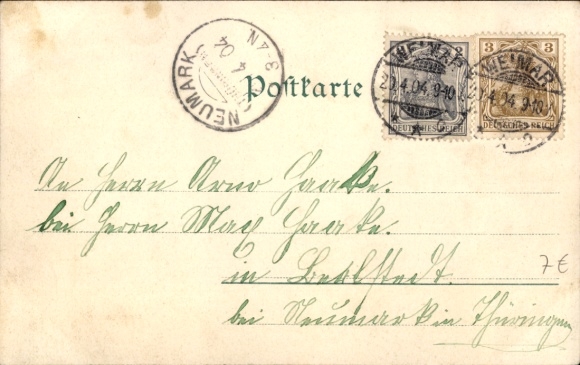 NEUMARK
4 04
3-4N
Postkarte
WEIMAR
4.04.9-10
2
DEUTSCHES REICH
WEIMAR
4.04.9-10
3 3
DEUTSCHES REICH
An Herrn Arno Haake.
bei Herrn Max Haake.
in Berlstedt.
7€
bei Neumark in Thüringen